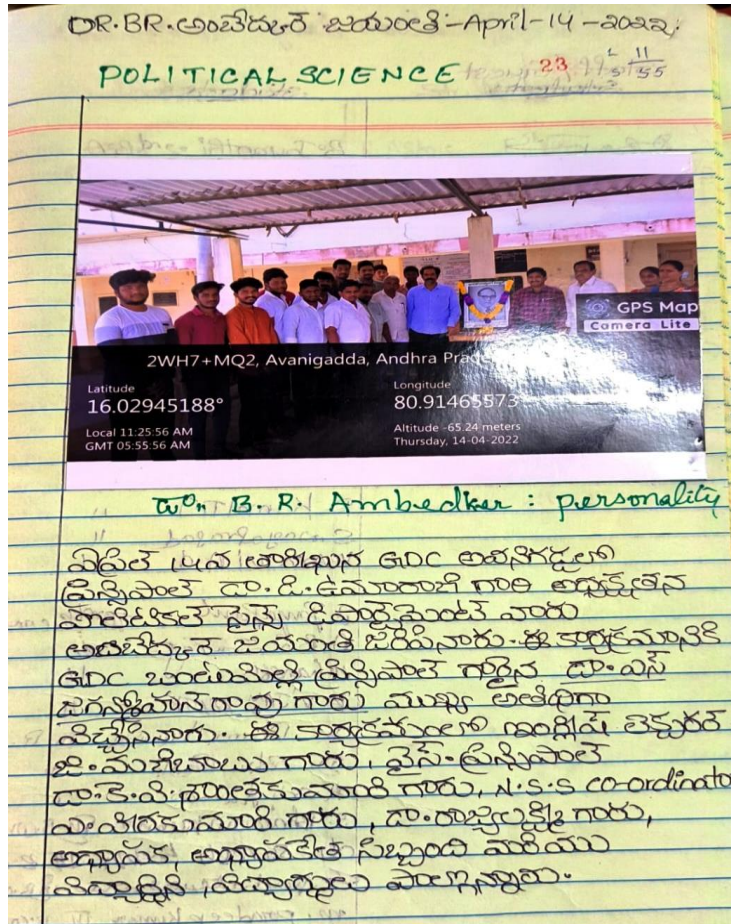 DR.BR.అంబేద్కర్ జయంతి-April-14-2022.
POLITICAL SCIENCE 23 11/55
GPS Map
Camera Lite
2WH7+MQ2, Avanigadda, Andhra
Latitude
16.02945188°
Longitude
80.91465573
Local 11:25:56 AM
GMT 05:55:56 AM
Altitude -65.24 meters
Thursday, 14-04-2022
డాn B.R. Ambedker : personality
ఏప్రిల్ 14వ తారీఖున GDC అవనిగడ్డలో
ప్రిన్సిపాల్ డా.డి.ఉమారాణి గారి అధ్యక్షతన
పొలిటికల్ సైన్స్ డిపార్ట్మెంట్ వారు
అంబేద్కర్ జయంతి జరిపినారు. ఈ కార్యక్రమానికి
GDC బంటుమిల్లి ప్రిన్సిపాల్ గారైన డా.ఎస్
జగన్మోహన్ రావు గారు ముఖ్య అతిథిగా
విచ్చేసినారు. ఈ కార్యక్రమంలో ఇంగ్లీష్ లెక్చరర్
జి.మణిబాబు గారు, వైస్-ప్రిన్సిపాల్
డా.కె.వి.శాంతకుమారి గారు, N.S.S co-ordinator
ఎ.వీరకుమారి గారు, డా.రాజ్యలక్ష్మి గారు,
అధ్యాపక, అధ్యాపకేతర సిబ్బంది మరియు
విద్యార్థిని, విద్యార్థులు పాల్గొన్నారు.